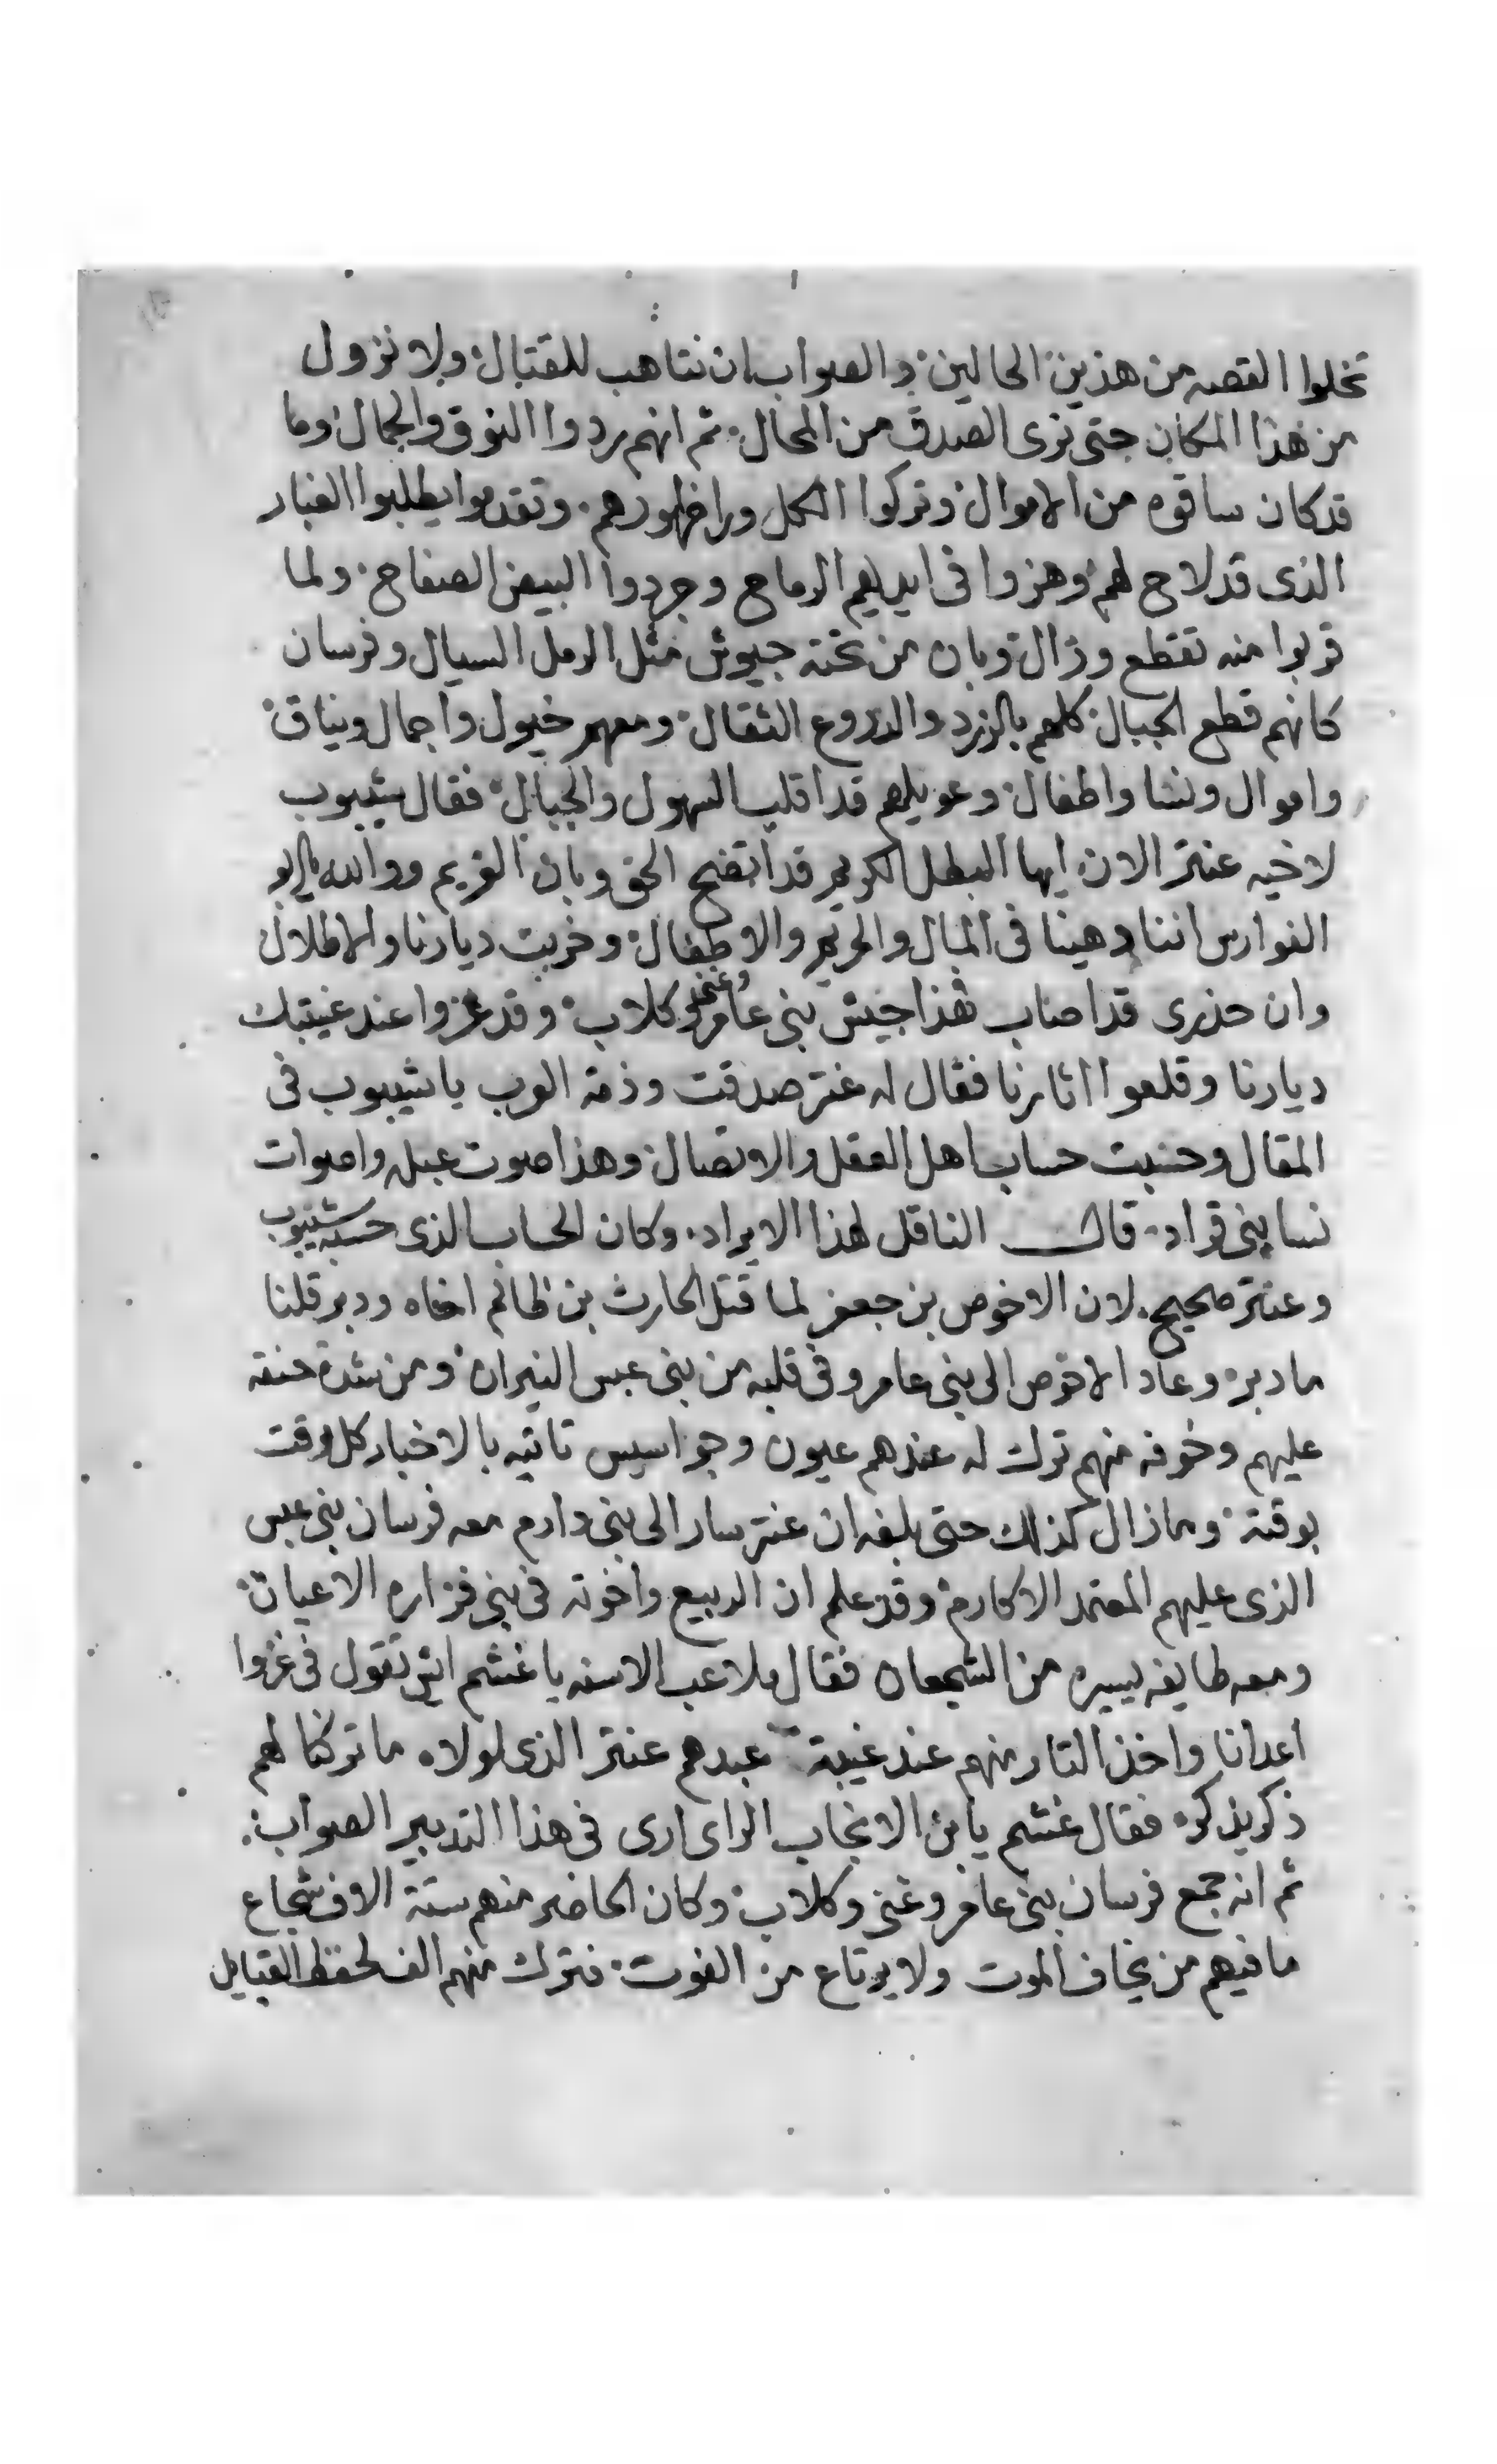 تخلوا القصه من هذين الحالين والصواب ان نتاهب للقتال ولا نزول
من هذا المكان حتى نرى الصدق من المحال ثم انهم ردوا النوق والجمال وما
قد كان ساقوه من الاموال وتركوا الكل ورا ظهورهم وتقدموا يطلبوا الغبار
الذى قد لاح لهم وهزوا فى ايديهم الرماح وجردوا البيض الصفاح ولما
قربوا منه تقطع وزال وبان من تحته جيوش مثل الرمل السيال وفرسان
كانهم قطع الجبال كلهم بالزرد والدروع الثقال ومعهم خيول واجمال ونياق
واموال ونسا واطفال وعويلهم قد اقلب السهول والجبال فقال شيبوب
لاخيه عنتر الان ايها البطل الكريم قد اتضح الحق وبان الغريم ووالله يا ابو
الفوارس اننا دهينا فى المال والحريم والاطفال وخربت ديارنا والاطلال
وان حذرى قد اصاب فهذا جيش بنى عامر وغنى وكلاب وقد غزوا عند غيبتك
ديارنا وقلعوا اثارنا فقال له عنتر صدقت وذمة العرب يا شيبوب فى
المقال وحسبت حساب اهل العقل والاتصال وهذا صوت عبله واصوات
نسا بنى قراد قال الناقل لهذا الايراد وكان الحساب الذى حسبه شيبوب
وعنتر صحيح لان الاخوص بن جعفر لما قتل الحارث بن ظالم اخاه ودبر قلنا
ما دبره وعاد الاخوص الى بنى عامر وفى قلبه من بنى عبس النيران ومن شدة حنقه
عليهم وخوفه منهم ترك له عندهم عيون وجواسيس تاتيه بالاخبار كل وقت
بوقته وما زال كذلك حتى بلغه ان عنتر سار الى بنى دارم معه فرسان بنى عبس
الذى عليهم المعتمد الاكارم وقد علم ان الربيع واخوته فى بنى فزاره الاعيان
ومعه طايفه يسيره من الشجعان فقال ملاعب الاسنه يا غشم ايش تقول فى غزوا
اعدانا واخذ التار منهم عند غيبة عبدهم عنتر الذى لولاه ما تركنا لهم
ذكر يذكر فقال غشم يا بن الانجاب الراى ارى فى هذا التدبير الصواب
ثم انه جمع فرسان بنى عامر وغنى وكلاب وكان الحاضر منهم ستة الاف شجاع
ما فيهم من يخاف الموت ولا يرتاع من الفوت فترك منهم الف لحفظ القبايل